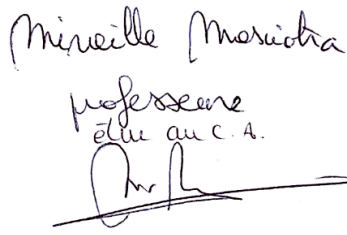 Mireille Masciotra
professeure
élue au C.A.